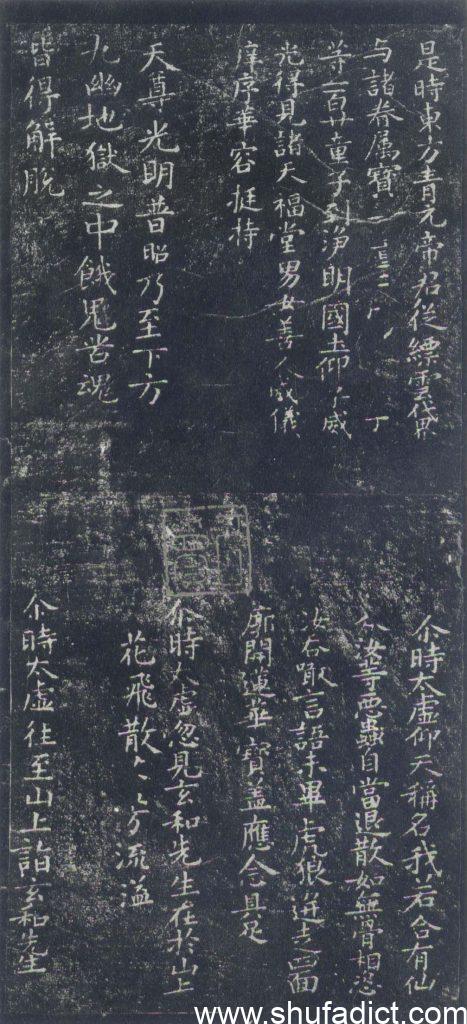 是時東方青元帝君從縹雲世界
与諸眷属寶
等一百廿童子到淨明國土仰
威光得見諸天福堂男女善人威儀
庠序華容挺特
天尊光明普照乃至下方
九幽地獄之中餓鬼苦魂
皆得解脫
尒時太虛仰天稱名我若合有仙
分汝等惡蟲自當退散如無骨相恣
汝吞噉言語未畢虎狼迸走四面
廓開蓮花寶蓋應念具足
尒時太虛忽見玄和先生在於山上
花飛散八方流溢
尒時太虛往至山上詣玄和先生
www.shufadict.com